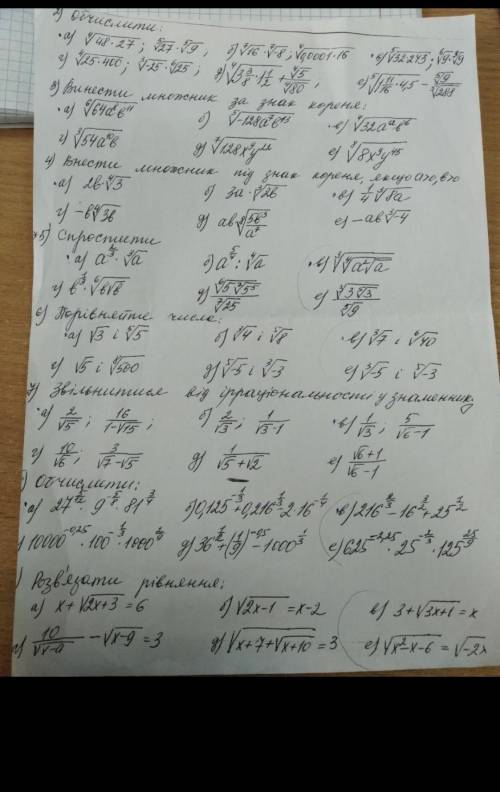 2) Обчислити:
а) ∜48·27 ; ⁵√27·⁵√9 , б) √16·√-8 ; ∜0,0001·16 в) ⁵√32·243 ; √9·√9
г) √25·400 ; √-25·√25 ; д) √3 3/8·1 1/2 + ∜5/∜80 , е) √1 11/16·4,5 − √9/√288
3) Винести множник за знак кореня:
а) ⁶√64a⁸b¹¹ б) ⁵√-128a⁷b¹³ в) √32a¹²b⁶
г) √54a¹⁰b д) ⁷√128x⁹y²² е) √8x⁹y⁴⁵
4) Внести множник під знак кореня, якщо a≥0, b≥0
а) 2b·∜3 б) 3a·∛2b в) 1/4 √8a
г) -b∜3b д) ab √5b³/a² е) -ab∛-4
5) Спростити
а) a^(2/3)·√a б) a^(5/6) : ∜a в) √√a²√a
г) b^(1/3)·⁶√b√b д) √5√5³/∛25 е) √3∛3/√9
6) Порівняйте числа:
а) √3 і ∜5 б) √4 і √8 в) ∛7 і ⁶√40
г) √5 і √500 д) √-5 і √-3 е) ∛-5 і √-3
7) Звільнитися від ірраціональності у знаменнику
а) 2/√5 ; 16/(1-√15) ; б) 2/√3 ; 1/(√3-1) в) 1/√3 ; 5/(√6-1)
г) 10/√6 ; 3/(√7-√5) д) 1/(√5+√2) е) (√6+1)/(√6-1)
) Обчислити:
а) 27^(5/12)·9^(-5/8)·81^(3/4) б) 0,125^(-1/3)+0,216^(-1/3)-2·16^(-1/4) в) 216^(2/3)-16^(3/2)+25^(1/2)
) 10000^(-0,25)·100^(-1/3)·1000^(2/9) д) 36^(1/2)+(1/9)^(-0,5)-1000^(1/3) е) 625^(-2,25)·25^(-1/3)·125^(25/9)
) Розв'язати рівняння:
а) x+√2x+3 = 6 б) √2x-1 = x-2 в) 3+√3x+1 = x
г) 10/√x-9 − √x-9 = 3 д) √x+7+√x+10 = 3 е) √x²-x-6 = √-2x